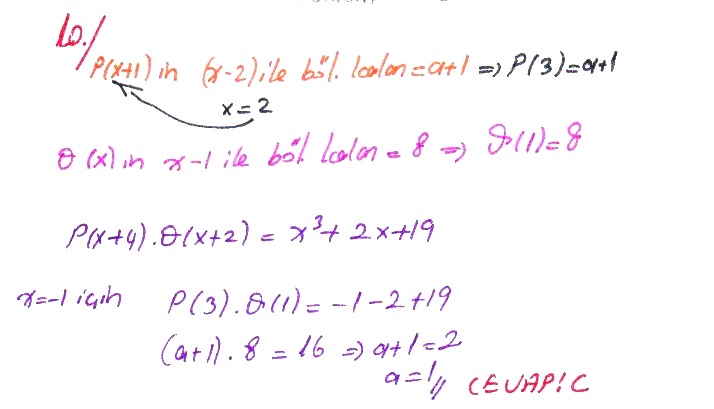 10./
P(x+1) in (x-2) ile böl. kalan = a+1 ⇒ P(3) = a+1
x=2
Q(x) in x-1 ile böl kalan = 8 ⇒ Q(1) = 8
P(x+4).Q(x+2) = x³+2x+19
x=-1 için P(3).Q(1) = -1-2+19
(a+1).8 = 16 ⇒ a+1=2
a=1//
CEVAP: C